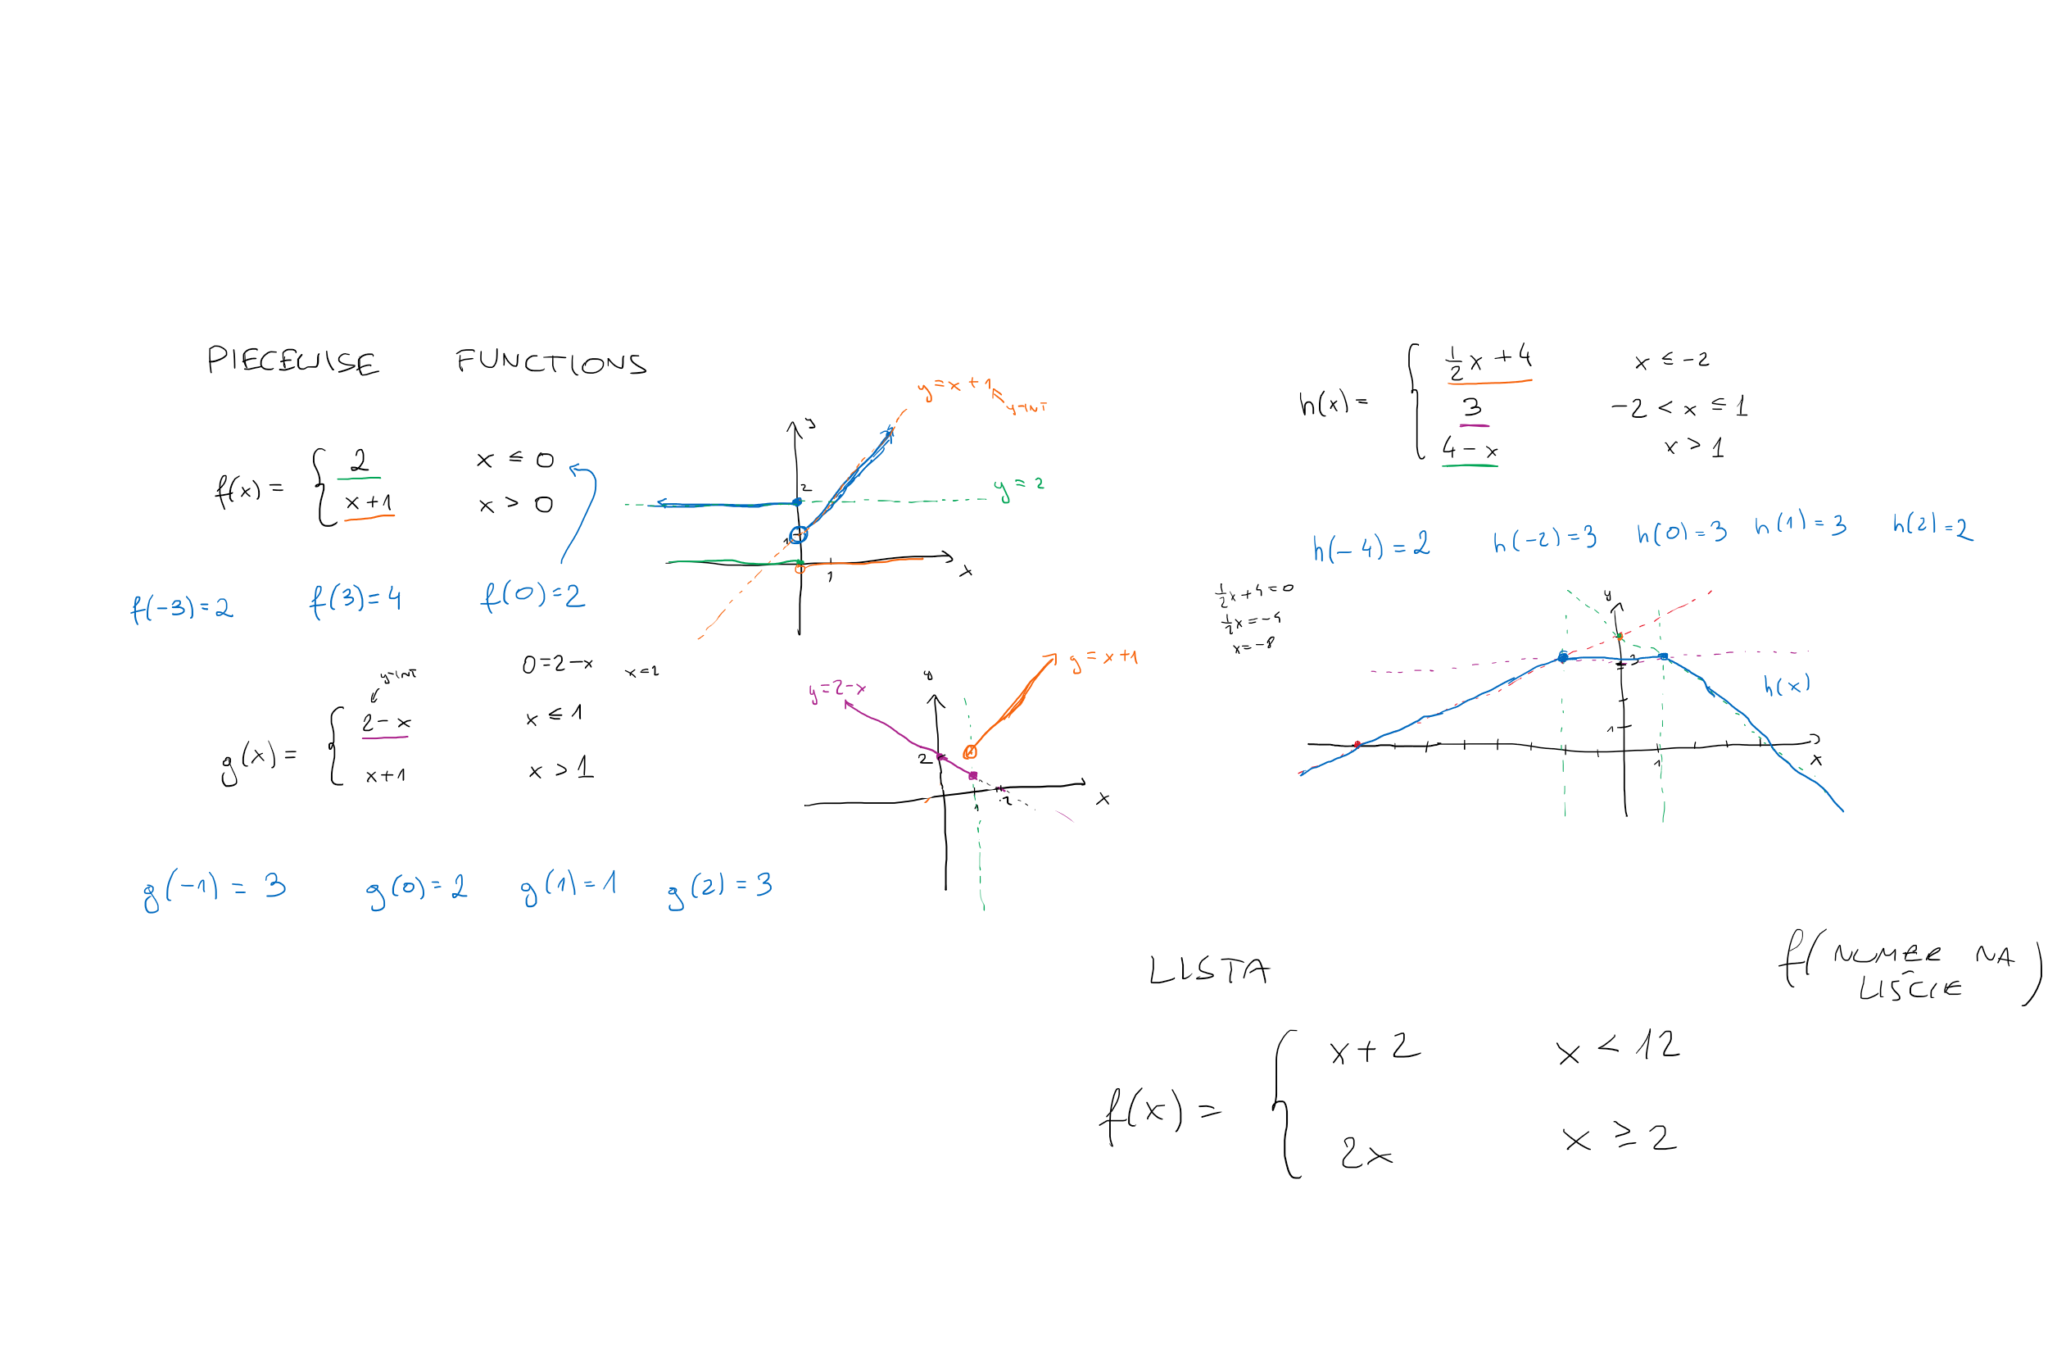 PIECEWISE FUNCTIONS
f(x) = { 2 x ≤ 0
x+1 x > 0
f(-3)=2 f(3)=4 f(0)=2
y=x+1
y-INT
y
2
y=2
1
1
x
0=2-x x=2
y-INT
g(x) = { 2-x x ≤ 1
x+1 x > 1
g(-1) = 3 g(0)=2 g(1)=1 g(2)=3
y=2-x
y
y=x+1
2
1
2
x
h(x)= { 1/2 x + 4 x ≤ -2
3 -2 < x ≤ 1
4-x x > 1
h(-4)=2 h(-2)=3 h(0)=3 h(1)=3 h(2)=2
1/2 x+4=0
1/2 x=-4
x=-8
y
3
h(x)
1
1
x
LISTA
f( NUMER NA
LIŚCIE )
f(x) = { x+2 x < 12
2x x ≥ 2